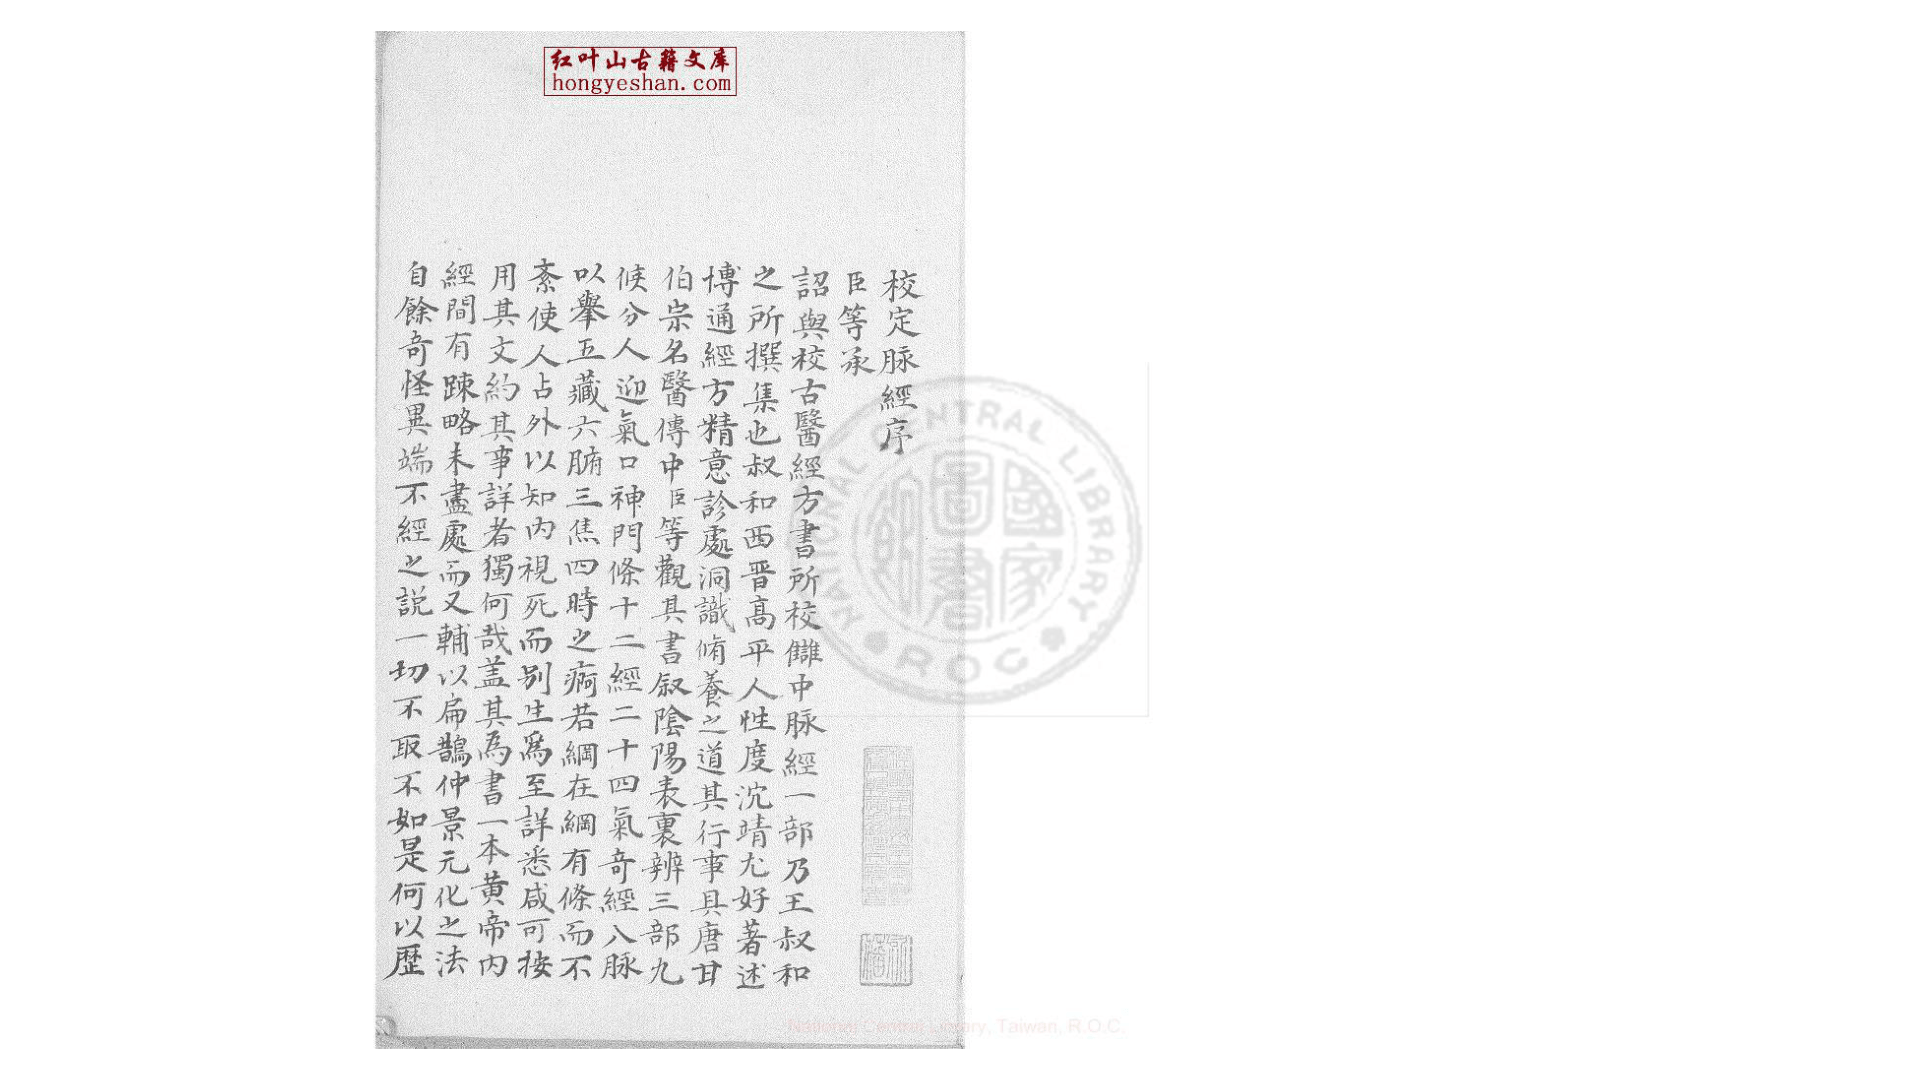 红叶山古籍文库
hongyeshan.com
校定脉經序
臣等承
詔與校古醫經方書所校讎中脉經一部乃王叔和
之所撰集也叔和西晋髙平人性度沉靖尤好著述
博通經方精意診處洞識脩養之道其行事具唐甘
伯宗名醫傳中臣等觀其書叙陰陽表裏辨三部九
候分人迎氣口神門條十二經二十四氣奇經八脉
以舉五藏六腑三焦四時之疴若綱在綱有條而不
紊使人占外以知内視死而别生爲至詳悉咸可按
用其文約其事詳者獨何哉盖其為書一本黄帝内
經間有踈略未盡處而又輔以扁鵲仲景元化之法
自餘奇怪異端不經之説一切不取不如是何以歴
NATIONAL CENTRAL LIBRARY
R.O.C.
國家圖書館
National Central Library, Taiwan, R.O.C.